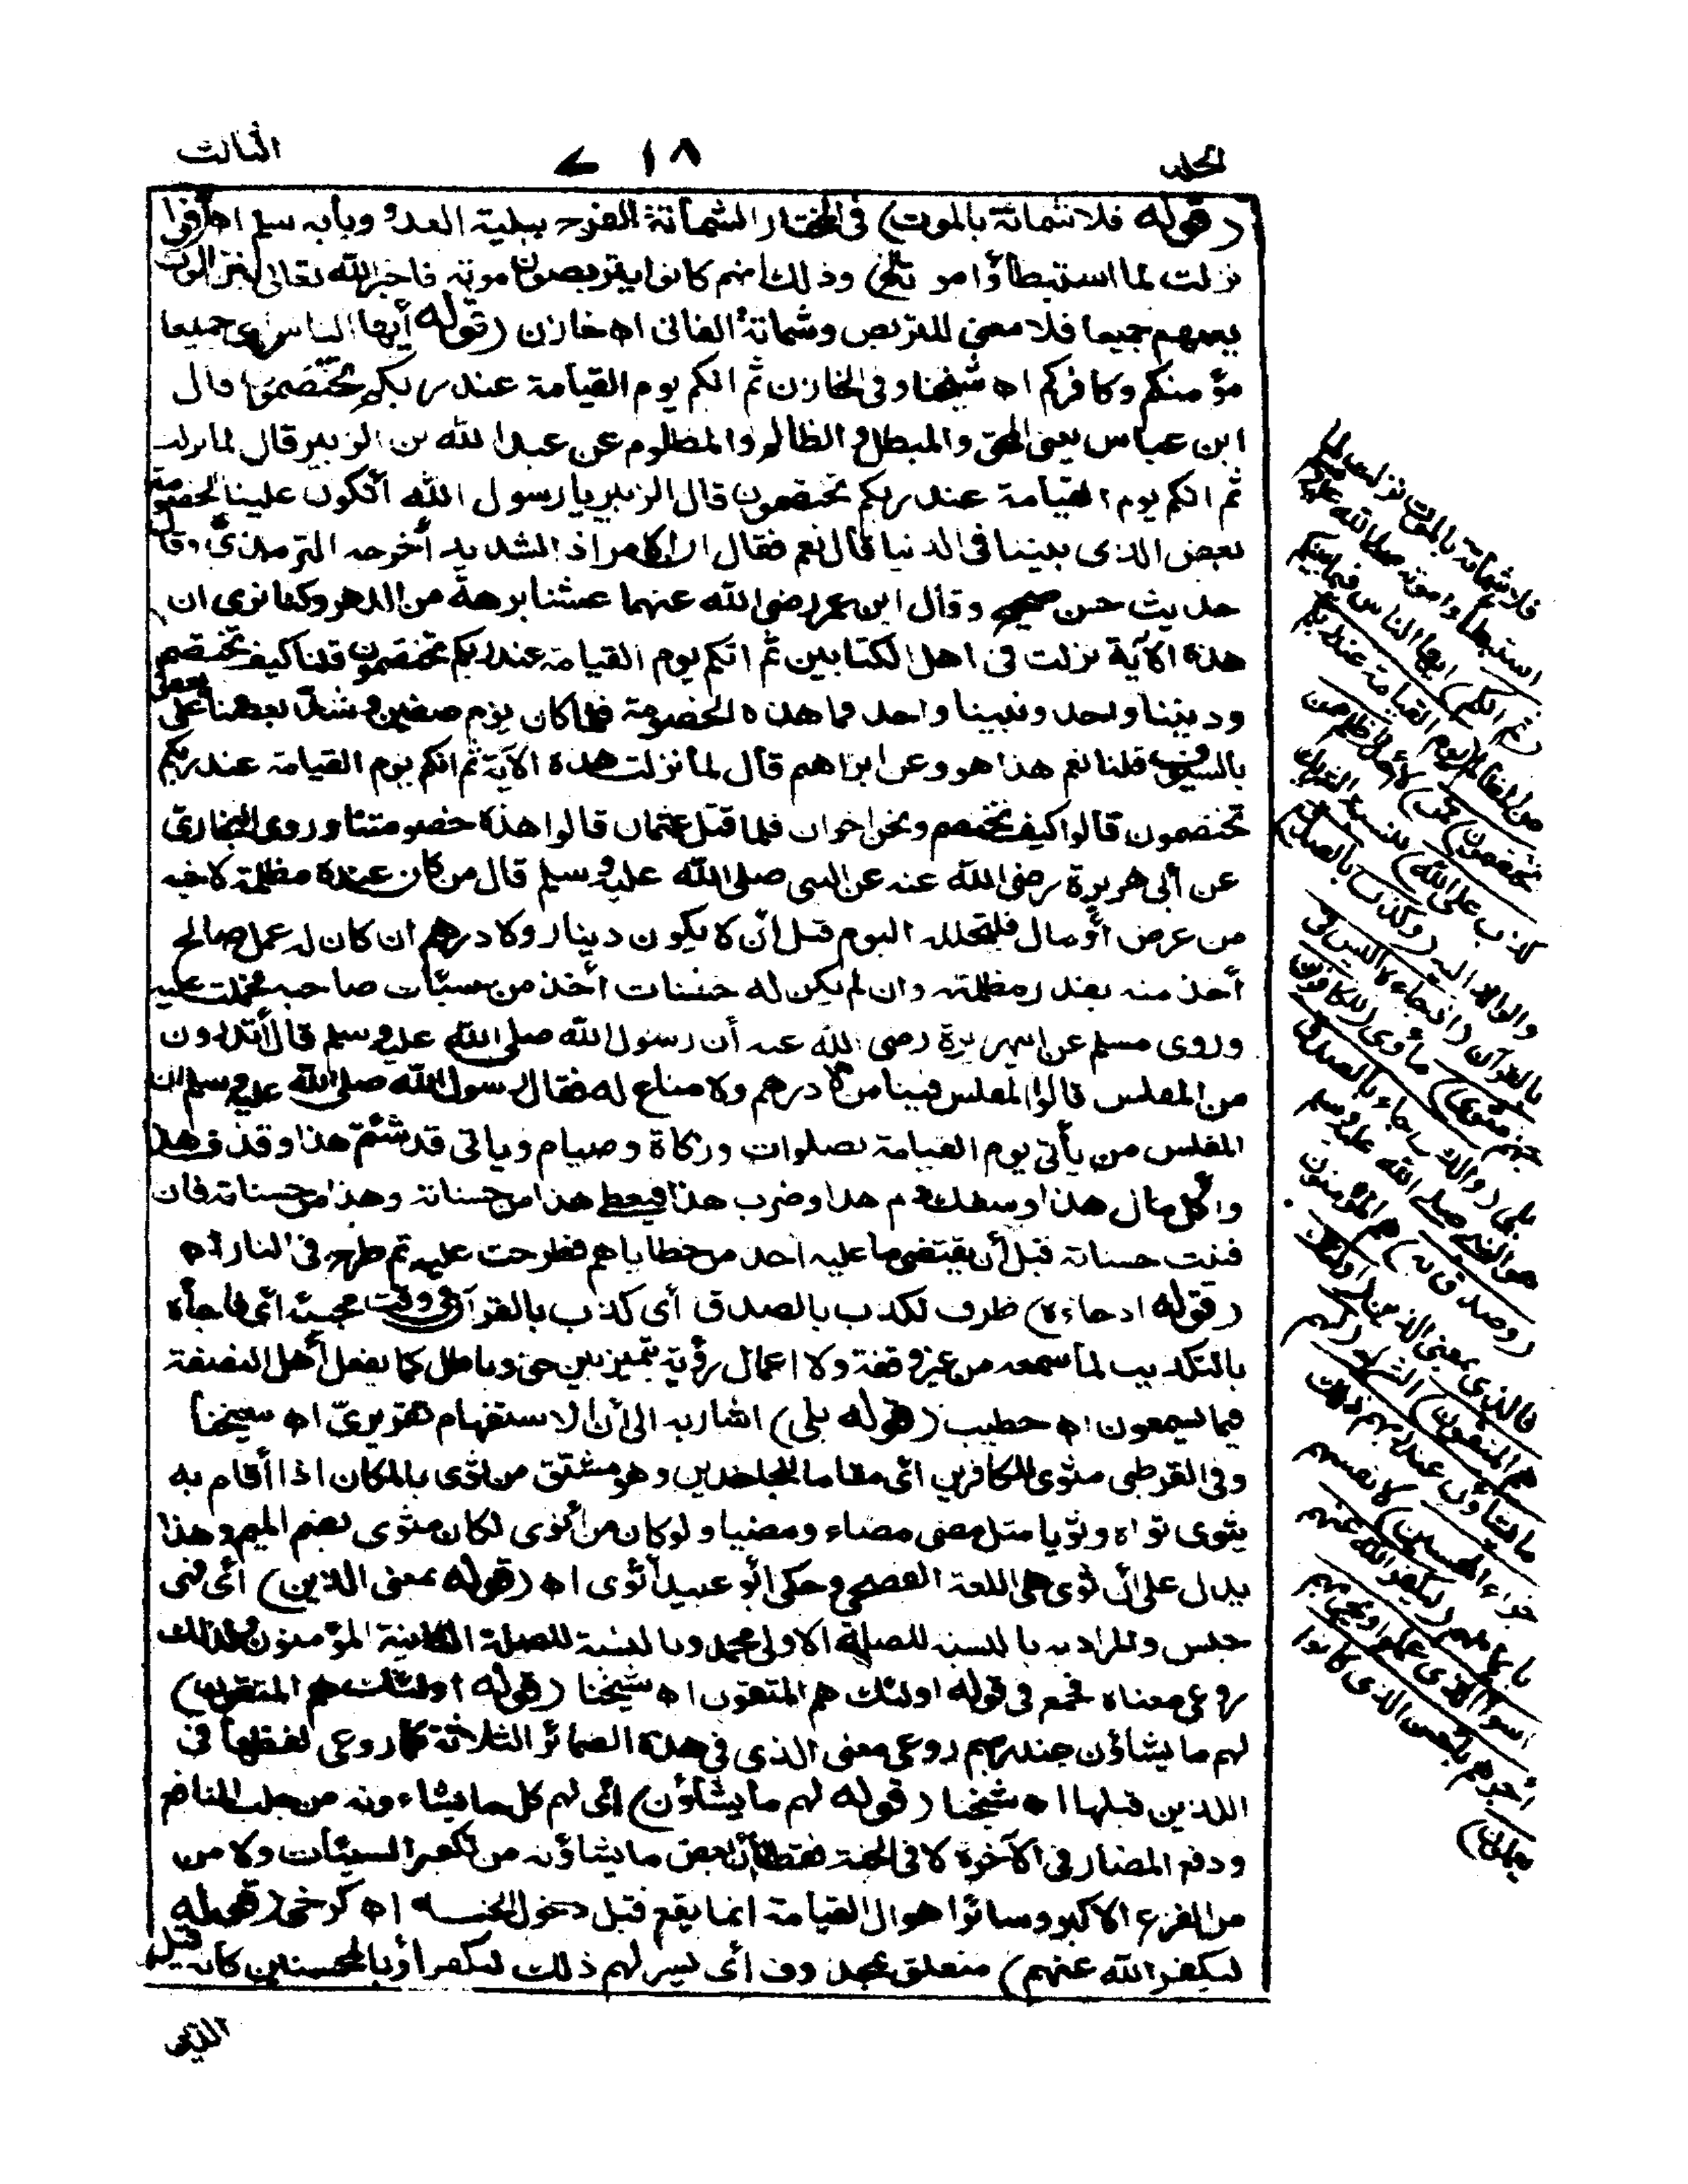 الجلد ١٨ ے الثالث
(قوله فلا شماتة بالموت) في المختار الشماتة الفرح ببلية العدو وبابه سلم اه
نزلت لما استبطأوا موته وذلك انهم كانوا يتربصون موته فاخبر الله تعالى الموت
يعمهم جميعا فلا معنى للتربص وشماتة الفانى اه خازن (قوله أيها الناس) اى جميعا
مؤمنكم وكافركم اه شيخنا وفى الخازن ثم انكم يوم القيامة عند ربكم تختصمون قال
ابن عباس يعنى المحق والمبطل والظالم والمظلوم عن عبد الله بن الزبير قال لما نزلت
ثم انكم يوم القيامة عند ربكم تختصمون قال الزبير يا رسول الله أتكون علينا الخصومة
بعض الذى بيننا فى الدنيا قال نعم فقال ان الامر اذا لشديد أخرجه الترمذى وقال
حديث حسن صحيح وقال ابن عمر رضى الله عنهما عشنا برهة من الدهر وكنا نرى ان
هذه الآية نزلت فى اهل الكتابين ثم انكم يوم القيامة عند ربكم تختصمون قلنا كيف نختصم
وديننا واحد ونبينا واحد فما هذه الخصومة فلما كان يوم صفين وشد بعضنا على بعض
بالسيوف قلنا نعم هذا هو وعن ابراهم قال لما نزلت هذه الآية ثم انكم يوم القيامة عند ربكم
تختصمون قالوا كيف نختصم ونحن اخوان فلما قتل عثمان قالوا هذه خصومتنا وروى البخارى
عن أبى هريرة رضى الله عنه عن النبى صلى الله عليه وسلم قال من كان عنده مظلمة لاخيه
من عرض أو مال فليتحلله اليوم قبل أن لا يكون دينار ولا درهم ان كان له عمل صالح
أخذ منه بقدر مظلمته وان لم يكن له حسنات أخذ من سيئات صاحبه فحملت عليه
وروى مسلم عن ابى هريرة رضى الله عنه أن رسول الله صلى الله عليه وسلم قال أتدرون
من المفلس قالوا المفلس فينا من لا درهم ولا متاع له فقال رسول الله صلى الله عليه وسلم ان
المفلس من يأتى يوم القيامة بصلوات وزكاة وصيام وياتى قد شتم هذا وقذف هذا
واكل مال هذا وسفك دم هذا وضرب هذا فيعطى هذا من حسناته وهذا من حسناته فان
فنيت حسناته قبل أن يقتضى ما عليه اخذ من خطاياهم فطرحت عليه ثم طرح فى النار اه
(قوله اذ جاءه) ظرف لكذب بالصدق أى كذب بالقرآن فى وقت مجيئه أى فاجأه
بالتكذيب لما سمعه من غير وقفة ولا اعمال رؤية بتمييز بين حق وباطل كما يفعل أهل النصفة
فيما يسمعون اه خطيب (قوله بلى) اشار به الى أن الاستفهام تقريرى اه شيخنا
وفى القرطبى مثوى للكافرين اى مقاما للجاحدين وهو مشتق من ثوى بالمكان اذا أقام به
يثوى ثواء وثويا مثل مضى مضاء ومضيا ولو كان من أثوى لكان مثوى بضم الميم وهذا
يدل على أن ثوى هى اللغة الفصحى وحكى أبو عبيد أثوى اه (قوله بمعنى الذين) أى فهى
جنس والمراد به بالنسبة للصلة الاولى محمد وبالنسبة للصلة الثانية المؤمنون ولذلك
روعى معناه فجمع فى قوله اولئك هم المتقون اه شيخنا (قوله اولئك هم المتقون)
لهم ما يشاؤن عند ربهم روعى معنى الذى فى هذه الضمائر الثلاثة كما روعى لفظها فى
اللذين قبلها اه شيخنا (قوله لهم ما يشاؤن) أى لهم كل ما يشاءونه من جلب المنافع
ودفع المضار فى الآخرة لا فى الجنة فقط لأن بعض ما يشاؤنه من تكفير السيئات ولا من
من الفزع الاكبر وسائر اهوال القيامة انما يقع قبل دخول الجنة اه كرخى (قوله
ليكفر الله عنهم) متعلق بمحذوف أى يسر لهم ذلك ليكفر أو بالمحسنين كأنه قيل
الذين
فلا شماتة بالموت نزلت لما
استبطأوا موته صلى الله عليه وسلم
(ثم انكم) ايها الناس فيما بينكم
من المظالم (يوم القيامة عند ربكم
تختصمون فمن) لا (أظلم من
كذب على الله) بنسبة الشريك
والولد اليه (وكذب بالصدق)
بالقرآن (اذ جاءه اليس فى
جهنم مثوى) مأوى (للكافرين)
بلى (والذى جاء بالصدق)
هو النبى صلى الله عليه وسلم
(وصدق به) هم المؤمنون
فالذى بمعنى الذين (اولئك
هم المتقون) الشرك (لهم
ما يشاؤن عند ربهم ذلك
جزاء المحسنين) لانفسهم
بايمانهم (ليكفر الله عنهم
اسوأ الذى عملوا ويجزيهم
أجرهم باحسن الذى كانوا
يعملون)